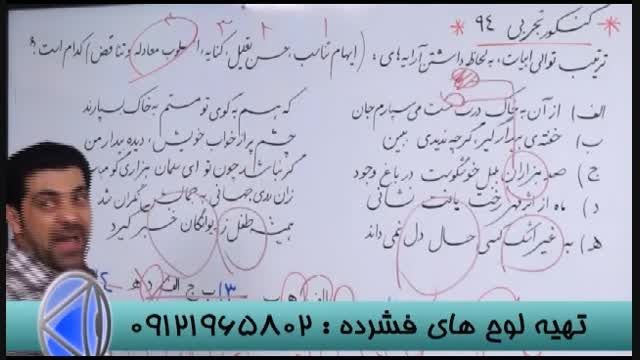 * کنکور تجربی ۹۴ *
۱ ۲ ۳
ترتیب توالی ابیات، به لحاظ داشتن آرایه های: (ایهام تناسب، حسن تعلیل، کنایه، اسلوب معادله و تناقض) کدام است؟
الف) از آن به خاک درت مست می سپارم جان که هم به کوی تو مستم به خاک بسپارند
ب) خفته ی بیدار گیر گرچه ندیدی ببین چشم پر از خواب خویش، دیده بیدار من
ج) صد هزاران بلبل خوشگوست در باغ وجود گر نباشد چون تو ای سلمان هزاری گو مباش
د) ماه از اثر مهر رخت یافت نشانی زان روی جهانی به جمالش نگران شد
هـ) به غیر اشک کسی حال دل نمی داند همیشه طفل ز دیوانگان خبر گیرد
۳) ب ج الف د هـ
تهیه لوح های فشرده : ۰۹۱۲۱۹۶۵۸۰۲